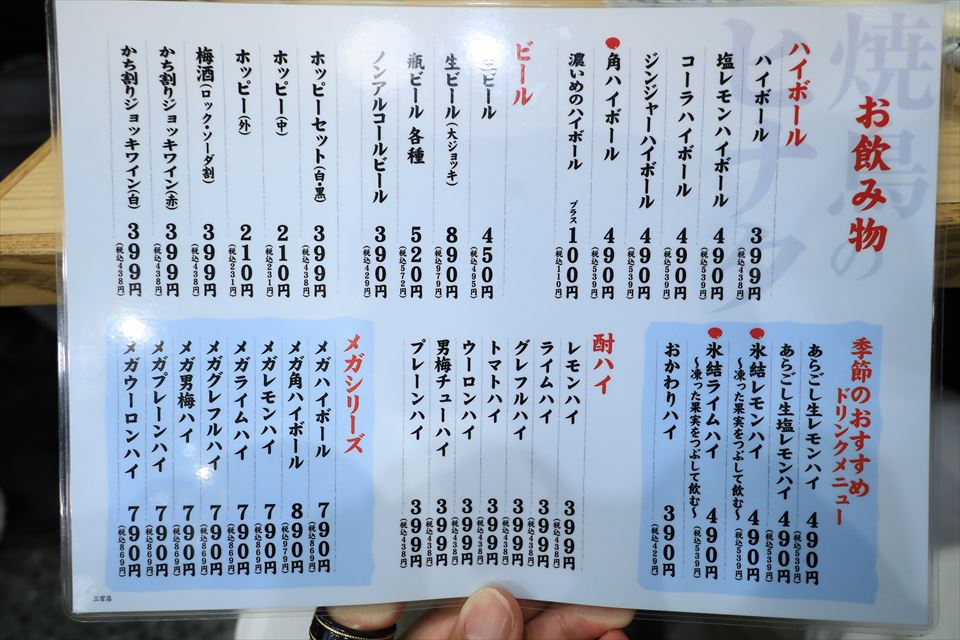 焼鳥の
ヒナタ
お飲み物
ハイボール
ハイボール 399円(税込438円)
塩レモンハイボール 490円(税込539円)
コーラハイボール 490円(税込539円)
ジンジャーハイボール 490円(税込539円)
角ハイボール 490円(税込539円)
濃いめのハイボール プラス100円(税込110円)
ビール
生ビール 450円(税込495円)
生ビール(大ジョッキ) 890円(税込979円)
瓶ビール 各種 520円(税込572円)
ノンアルコールビール 390円(税込429円)
ホッピーセット(白・黒) 399円(税込438円)
ホッピー(中) 210円(税込231円)
ホッピー(外) 210円(税込231円)
梅酒(ロック・ソーダ割) 399円(税込438円)
かち割りジョッキワイン(赤) 399円(税込438円)
かち割りジョッキワイン(白) 399円(税込438円)
季節のおすすめ
ドリンクメニュー
あらごし生レモンハイ 490円(税込539円)
あらごし生塩レモンハイ 490円(税込539円)
氷結レモンハイ 490円(税込539円)
〜凍った果実をつぶして飲む〜
氷結ライムハイ 490円(税込539円)
〜凍った果実をつぶして飲む〜
おかわりハイ 390円(税込429円)
酎ハイ
レモンハイ 399円(税込438円)
ライムハイ 399円(税込438円)
グレフルハイ 399円(税込438円)
トマトハイ 399円(税込438円)
ウーロンハイ 399円(税込438円)
男梅チューハイ 399円(税込438円)
プレーンハイ 399円(税込438円)
メガシリーズ
メガハイボール 790円(税込869円)
メガ角ハイボール 890円(税込979円)
メガレモンハイ 790円(税込869円)
メガライムハイ 790円(税込869円)
メガグレフルハイ 790円(税込869円)
メガ男梅ハイ 790円(税込869円)
メガプレーンハイ 790円(税込869円)
メガウーロンハイ 790円(税込869円)
三宮店